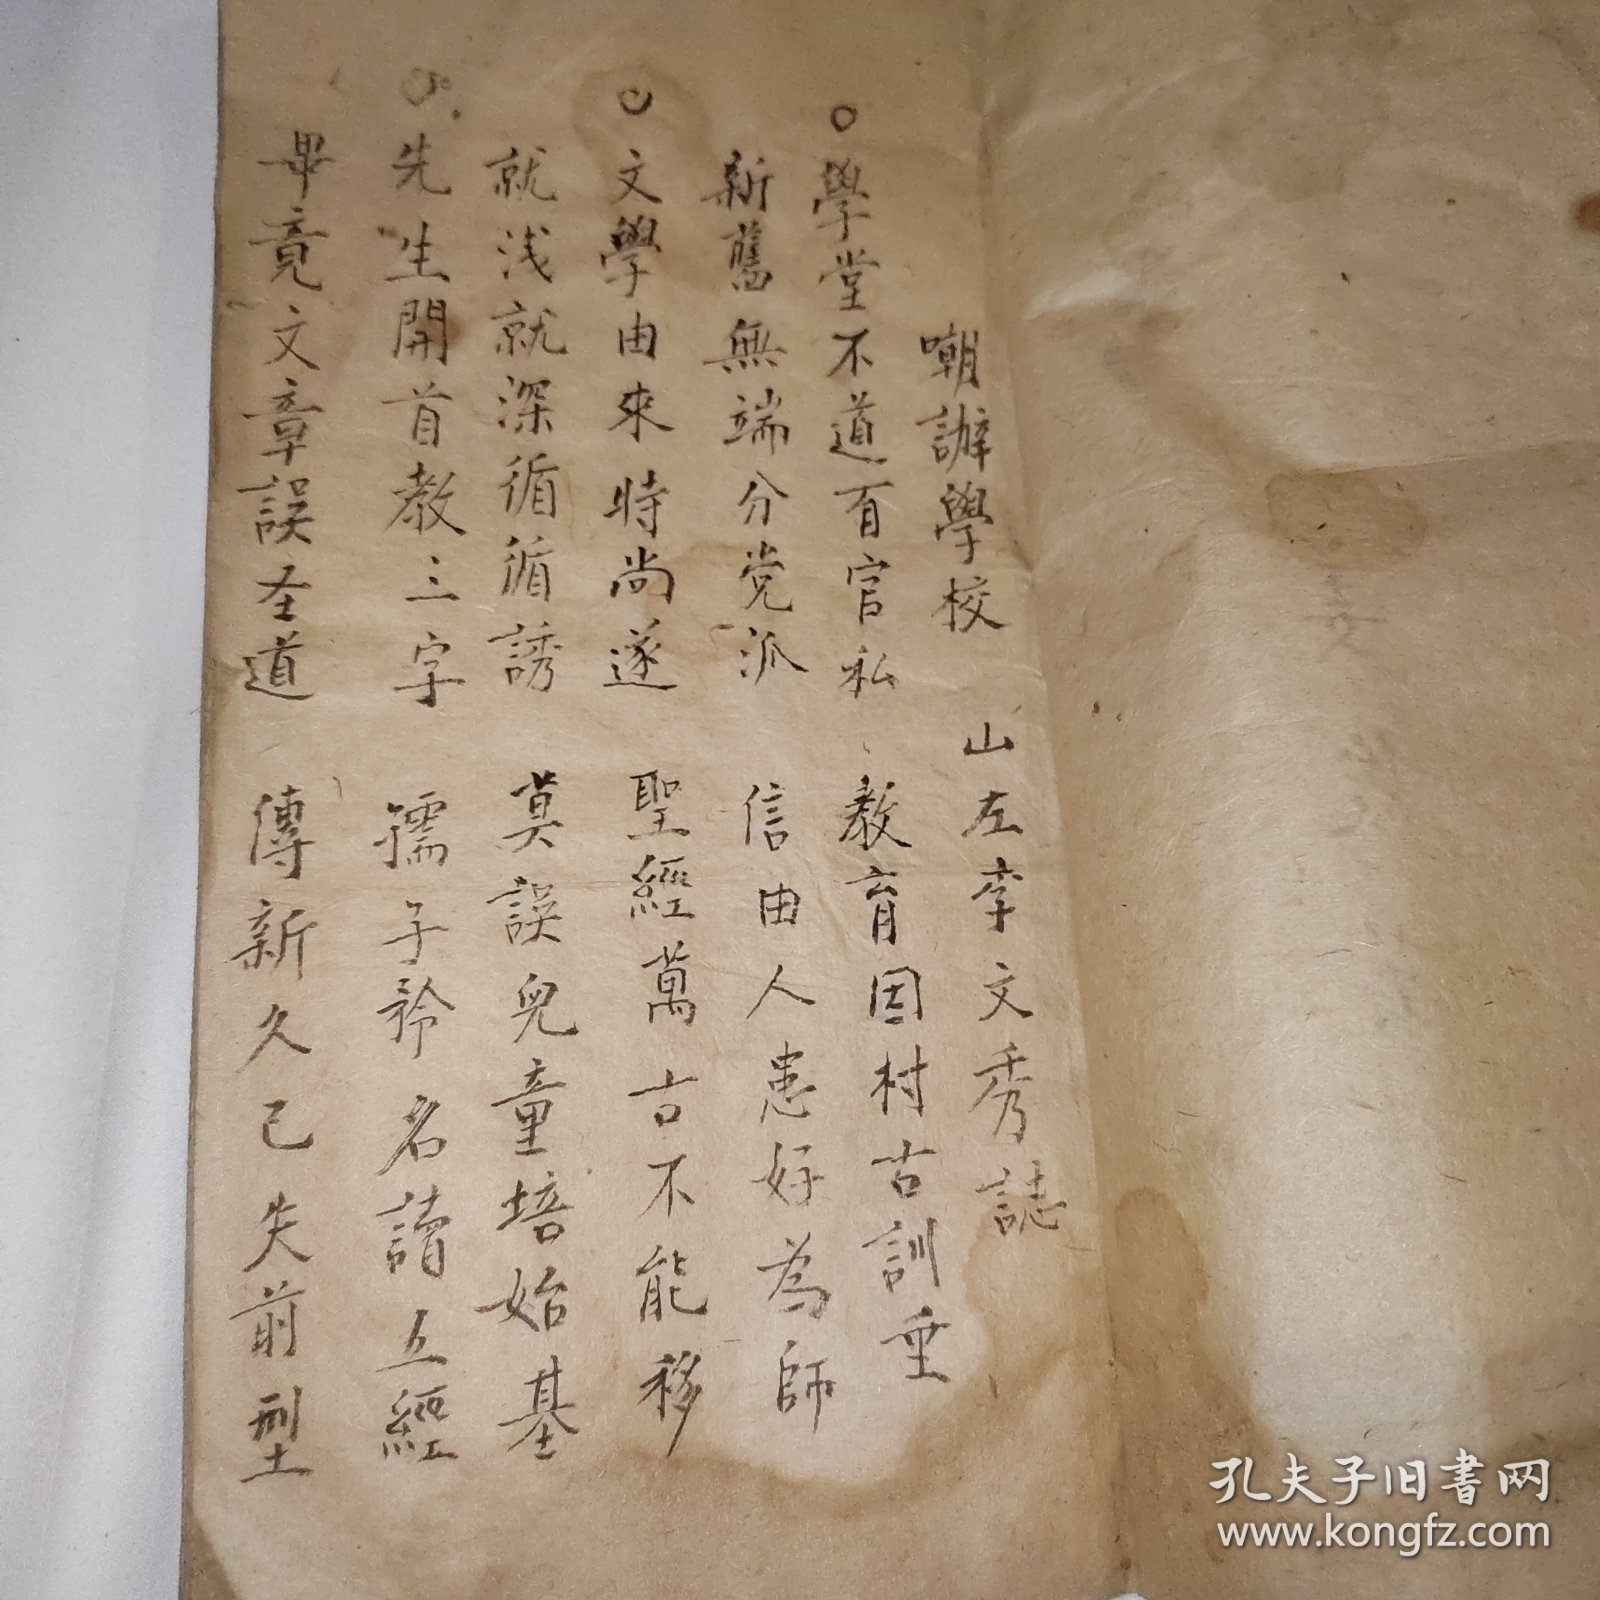 嘲辦學校 山左李文秀誌
學堂不道百官私 教育因村古訓垂
新舊無端分党派 信由人患好為師
文學由來時尚遂 聖經萬古不能移
就浅就深循循誘 莫誤兒童培始基
先生開首教三字 孺子矜名讀五經
畢竟文章誤圣道 傳新久已失前型
孔夫子旧书网
www.kongfz.com